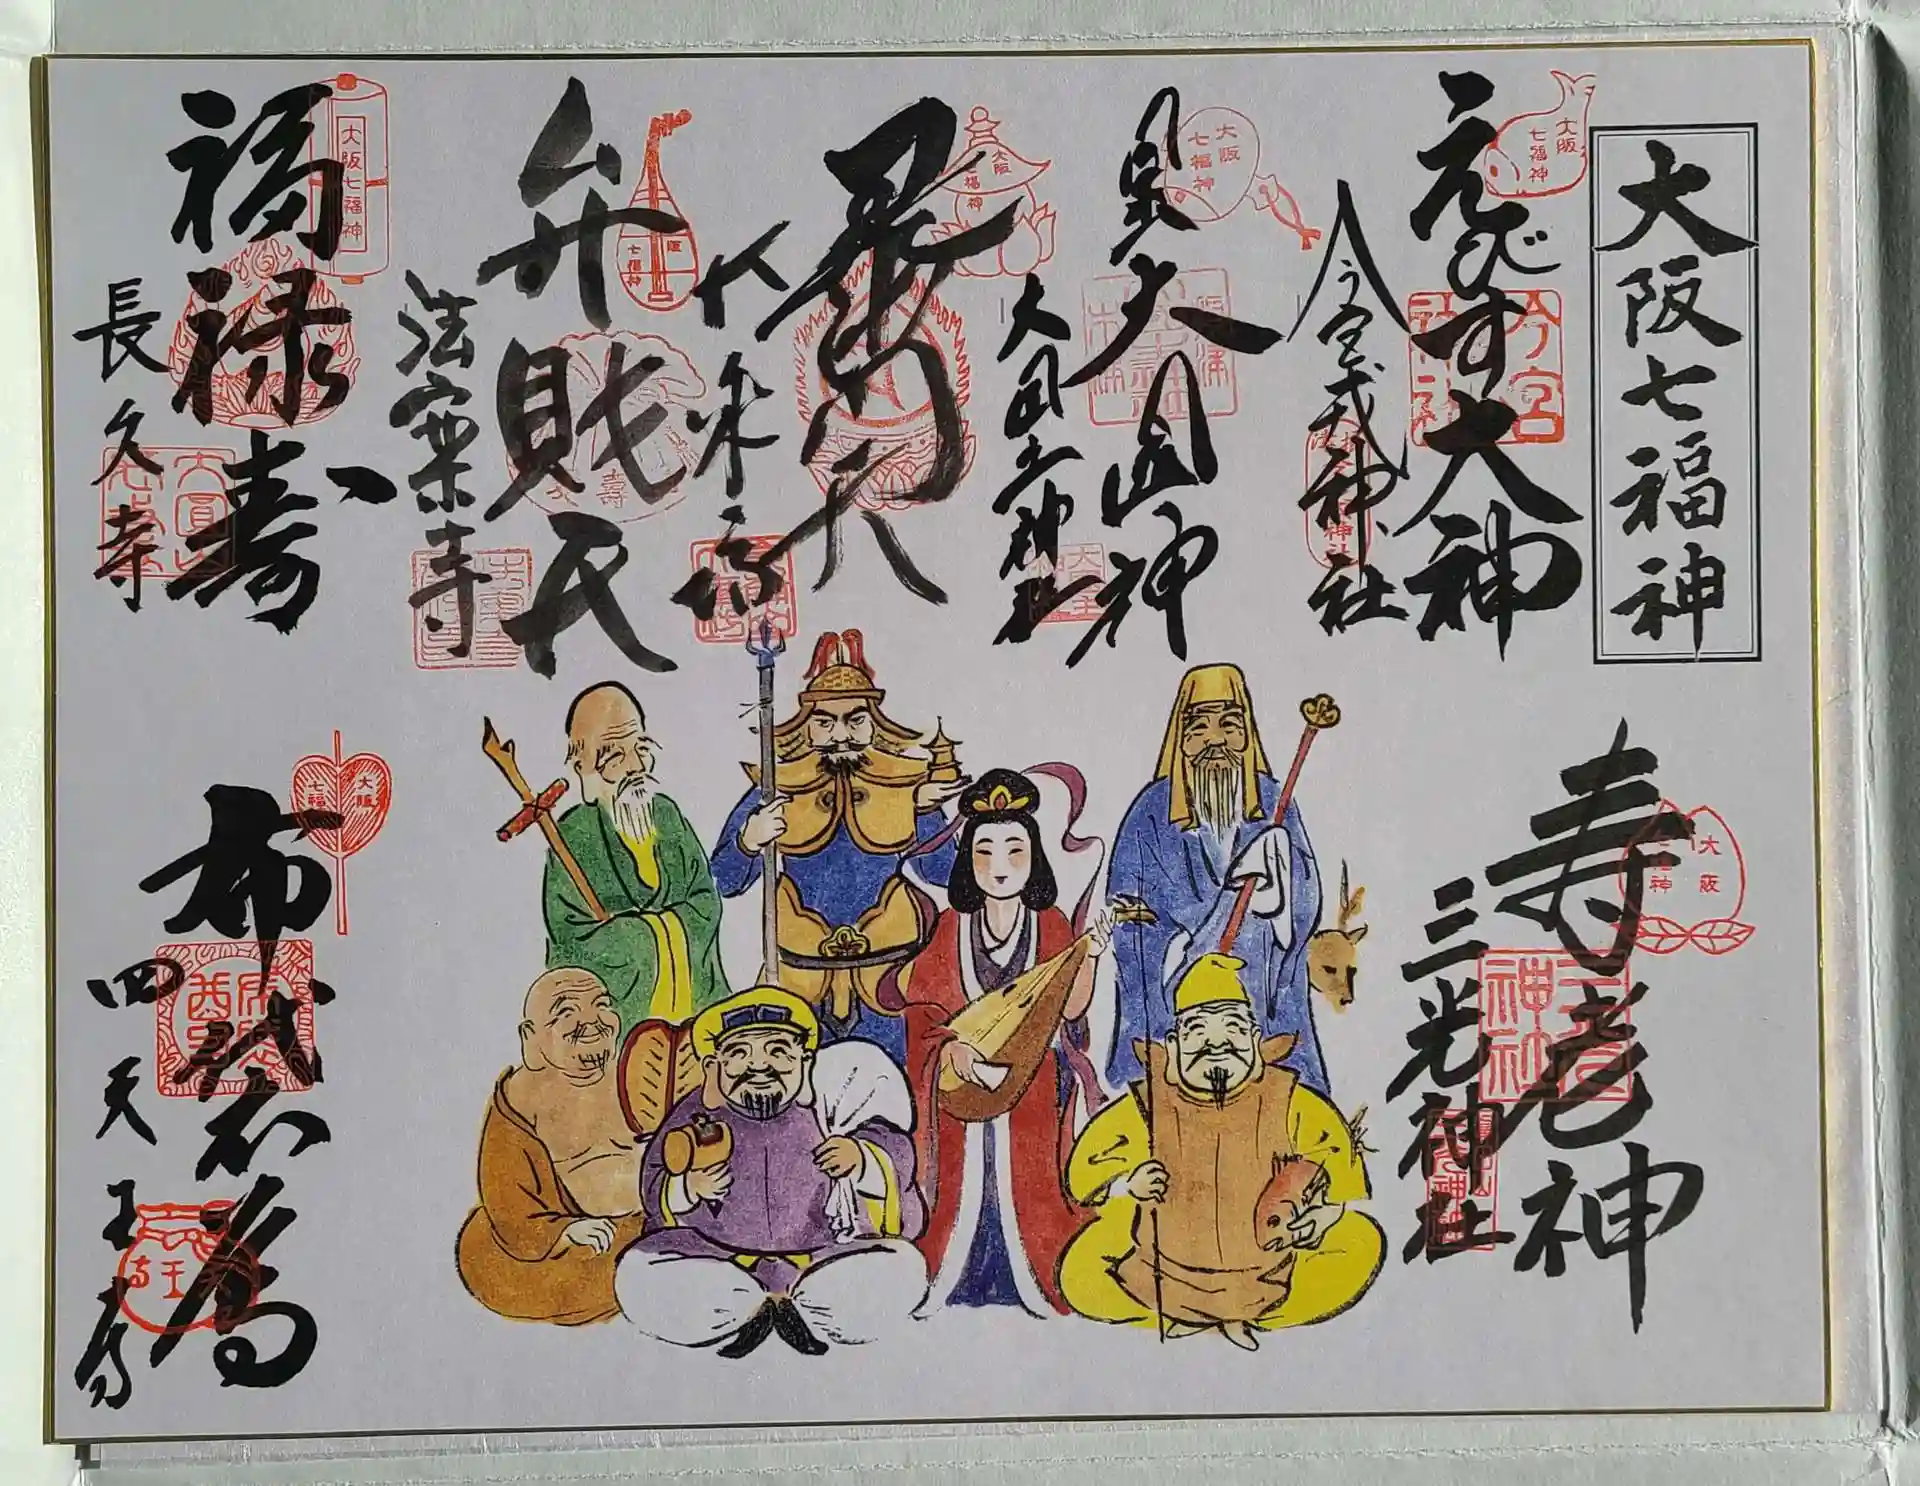 大阪七福神
えびす大神
今宮戎神社
大阪
七福神
今宮
黒大国神
大国主神社
大阪
七福神
大阪
七福神
毘沙門天
大乗坊
弁財天
法案寺
七福神
福禄寿
長久寺
大阪七福神
寿老神
三光神社
大阪
七福神
布袋尊
四天王寺
大阪
七福